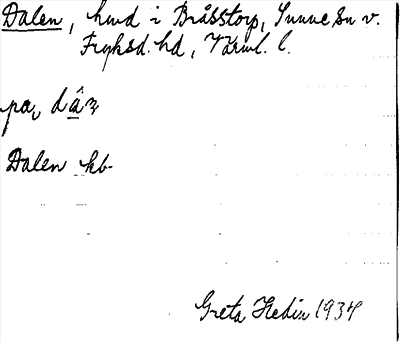 Dalen, hmd i Bråsstorp, Sunne sn v.
Fryksd. hd, Värml. l.
på, dâ
Dalen kb
Greta Hedin 1934